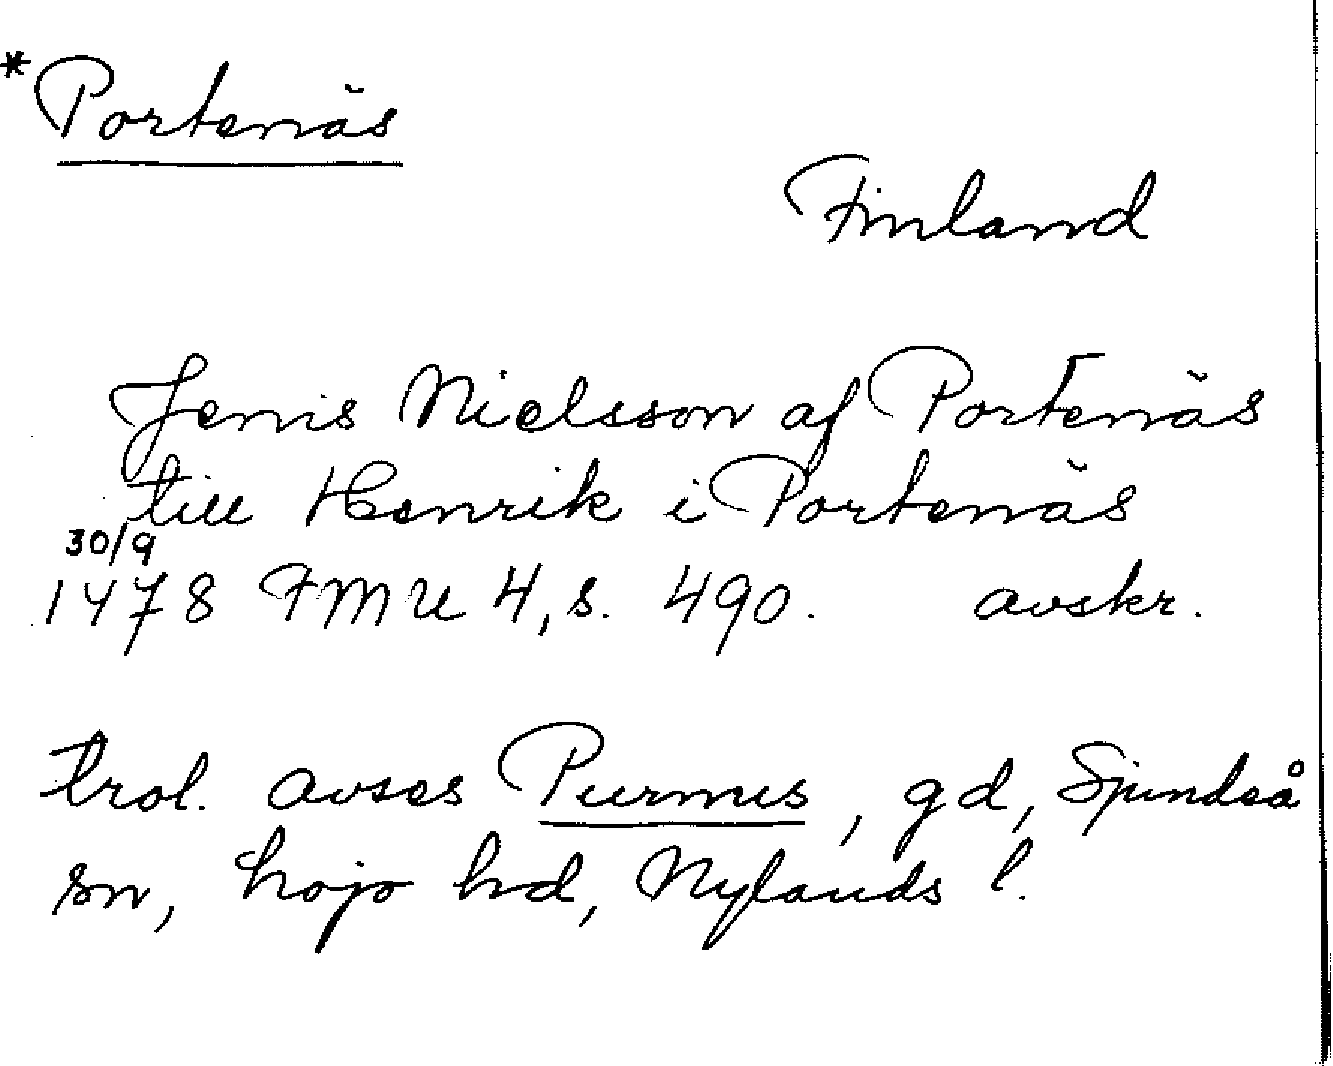 *Portenäs
Finland
Jenis Nielsson af Portenäs
till Henrik i Portenäs
30/9
1478 FMU 4, s. 490. avskr.
trol. avses Purnus, gd, Sjundeå
sn, Lojo hd, Nylands l.